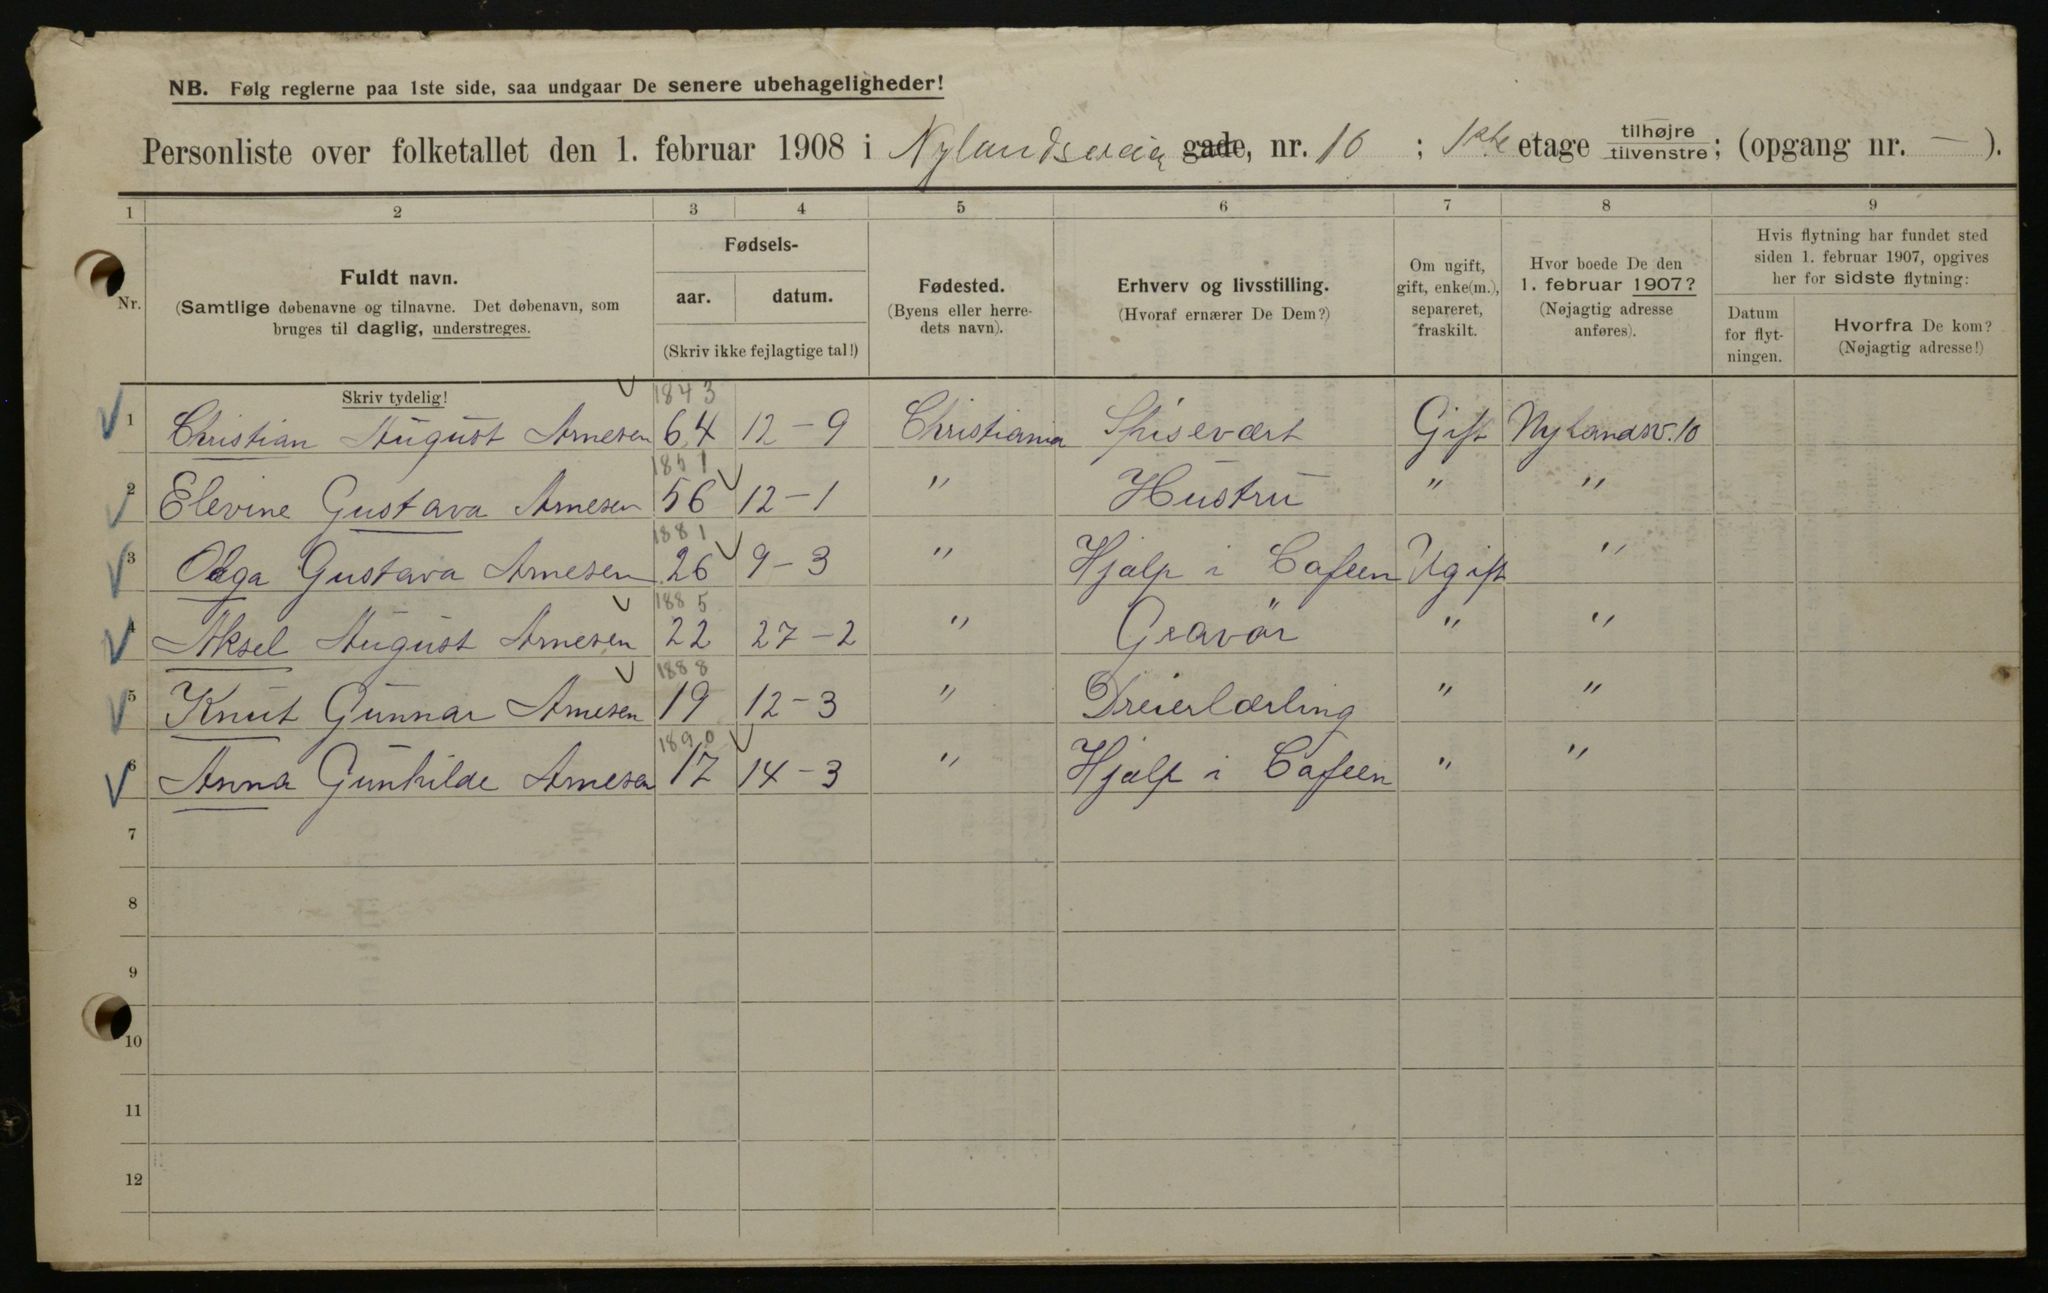 NB. Følg reglerne paa 1ste side, saa undgaar De senere ubehageligheder!
Personliste over folketallet den 1. februar 1908 i Nylandsveien gade, nr. 10 ; 1ste etage tilhøjre tilvenstre ; (opgang nr. — ).
1 2 3 4 5 6 7 8 9
Nr.
Fuldt navn.
(Samtlige døbenavne og tilnavne. Det døbenavn, som
bruges til daglig, understreges.
Fødsels-
aar. datum.
(Skriv ikke fejlagtige tal!)
Fødested.
(Byens eller herre-
dets navn).
Erhverv og livsstilling.
(Hvoraf ernærer De Dem?)
Om ugift,
gift, enke(m.),
separeret,
fraskilt.
Hvor boede De den
1. februar 1907?
(Nøjagtig adresse
anføres).
Hvis flytning har fundet sted
siden 1. februar 1907, opgives
her for sidste flytning:
Datum
for flyt-
ningen.
Hvorfra De kom?
(Nøjagtig adresse!)
Skriv tydelig!
1843
1 Christian August Arnesen 64 12-9 Christiania Spisevært Gift Nylandsv. 10
1851
2 Elevine Gustava Arnesen 56 12-1 " Hustru " "
1881
3 Olga Gustava Arnesen 26 9-3 " Hjælp i Cafeen Ugift "
1885
4 Aksel August Arnesen 22 27-2 " Gravør " "
1888
5 Knut Gunnar Arnesen 19 12-3 " Dreierlærling " "
1890
6 Anna Gunhilde Arnesen 17 14-3 " Hjælp i Cafeen " "
7
8
9
10
11
12